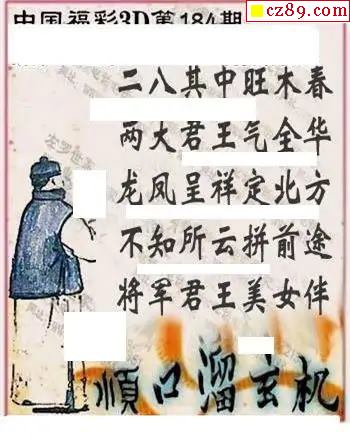 cz89.com
中国福彩3D第184期
二八其中旺木春
两大君王气全华
龙凤呈祥定北方
不知所云拼前途
将军君王美女伴
順口溜玄机